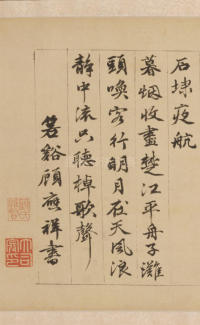 石埭夜航
暮烟收盡楚江平舟子灘
頭喚客行明月在天風浪
靜中流只聽棹歌聲
箬谿顧應祥書